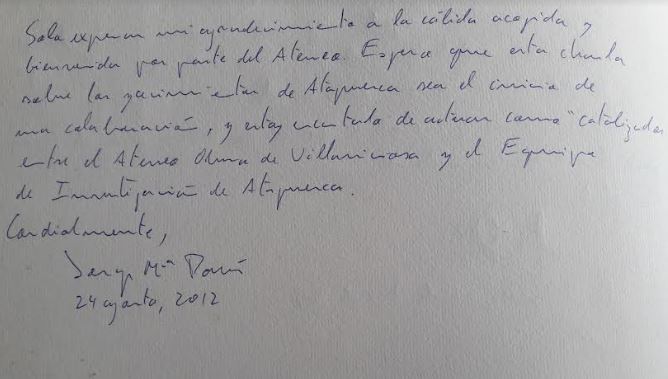 Solo expresar mi agradecimiento a la cálida acogida y
bienvenida por parte del Ateneo. Espero que esta charla
sobre los yacimientos de Atapuerca sea el inicio de
una colaboración, y estoy encantado de actuar como "catalizador
entre el Ateneo Obrero de Villaviciosa y el Equipo
de Investigación de Atapuerca.
Cordialmente,
Mª
24 agosto, 2012